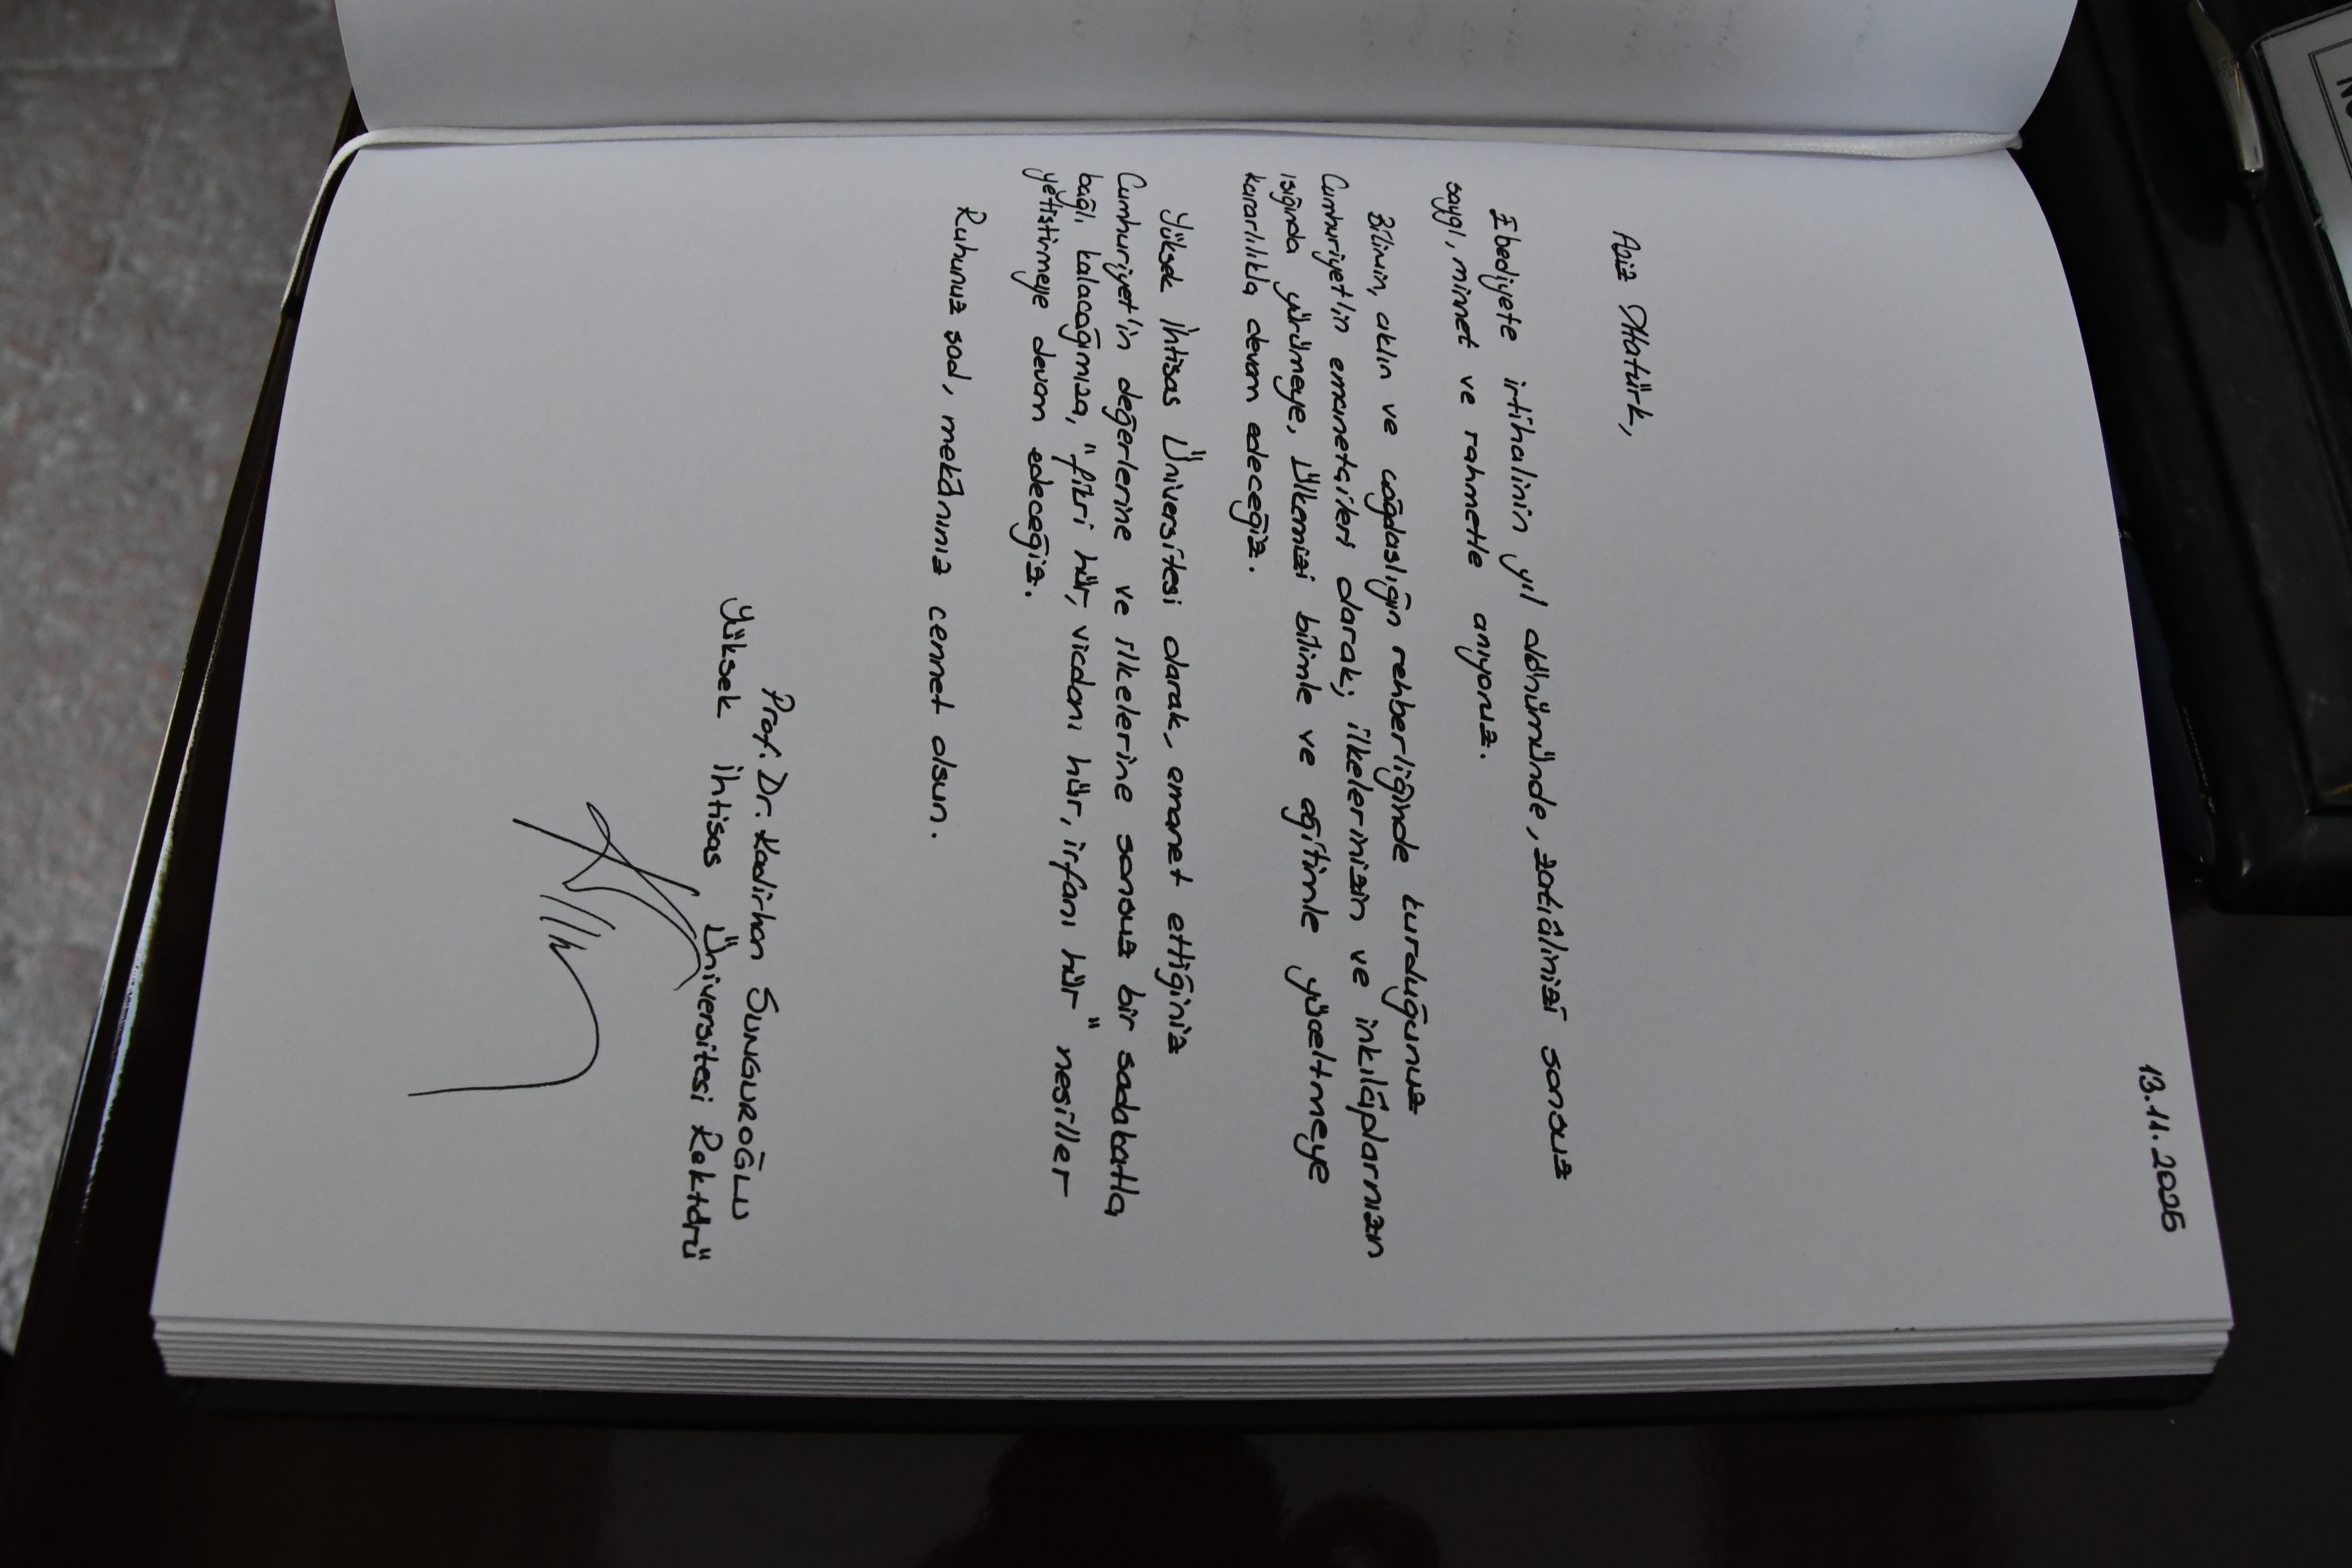 13.11.2025
Aziz Atatürk,
Ebediyete irtihalinin yıl dönümünde, zatıâlinizi sonsuz
saygı, minnet ve rahmetle anıyoruz.
Bilimin, aklın ve çağdaşlığın rehberliğinde kurduğunuz
Cumhuriyet'in emanetçileri olarak; ilkelerinizin ve inkılâplarınızın
ışığında yürümeye, ülkemizi bilimle ve eğitimle yüceltmeye
kararlılıkla devam edeceğiz.
Yüksek İhtisas Üniversitesi olarak, emanet ettiğiniz
Cumhuriyet'in değerlerine ve ilkelerine sonsuz bir sadakatla
bağlı kalacağımıza, "fikri hür, vicdanı hür, irfanı hür" nesiller
yetiştirmeye devam edeceğiz.
Ruhunuz şad, mekânınız cennet olsun.
Prof. Dr. Kadirhan SUNGUROĞLU
Yüksek İhtisas Üniversitesi Rektörü